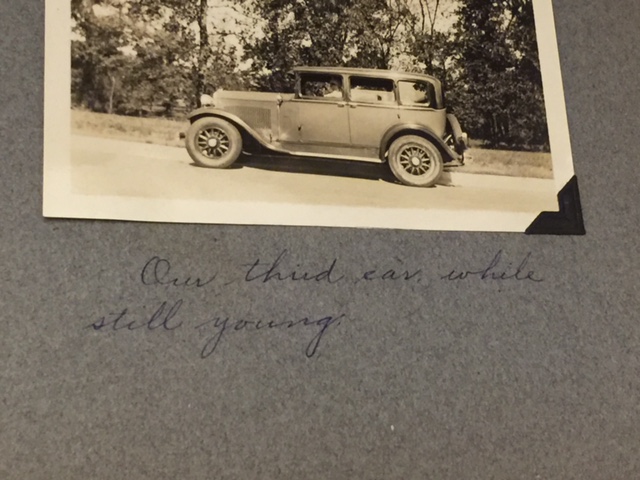 Our third car, while
still young.